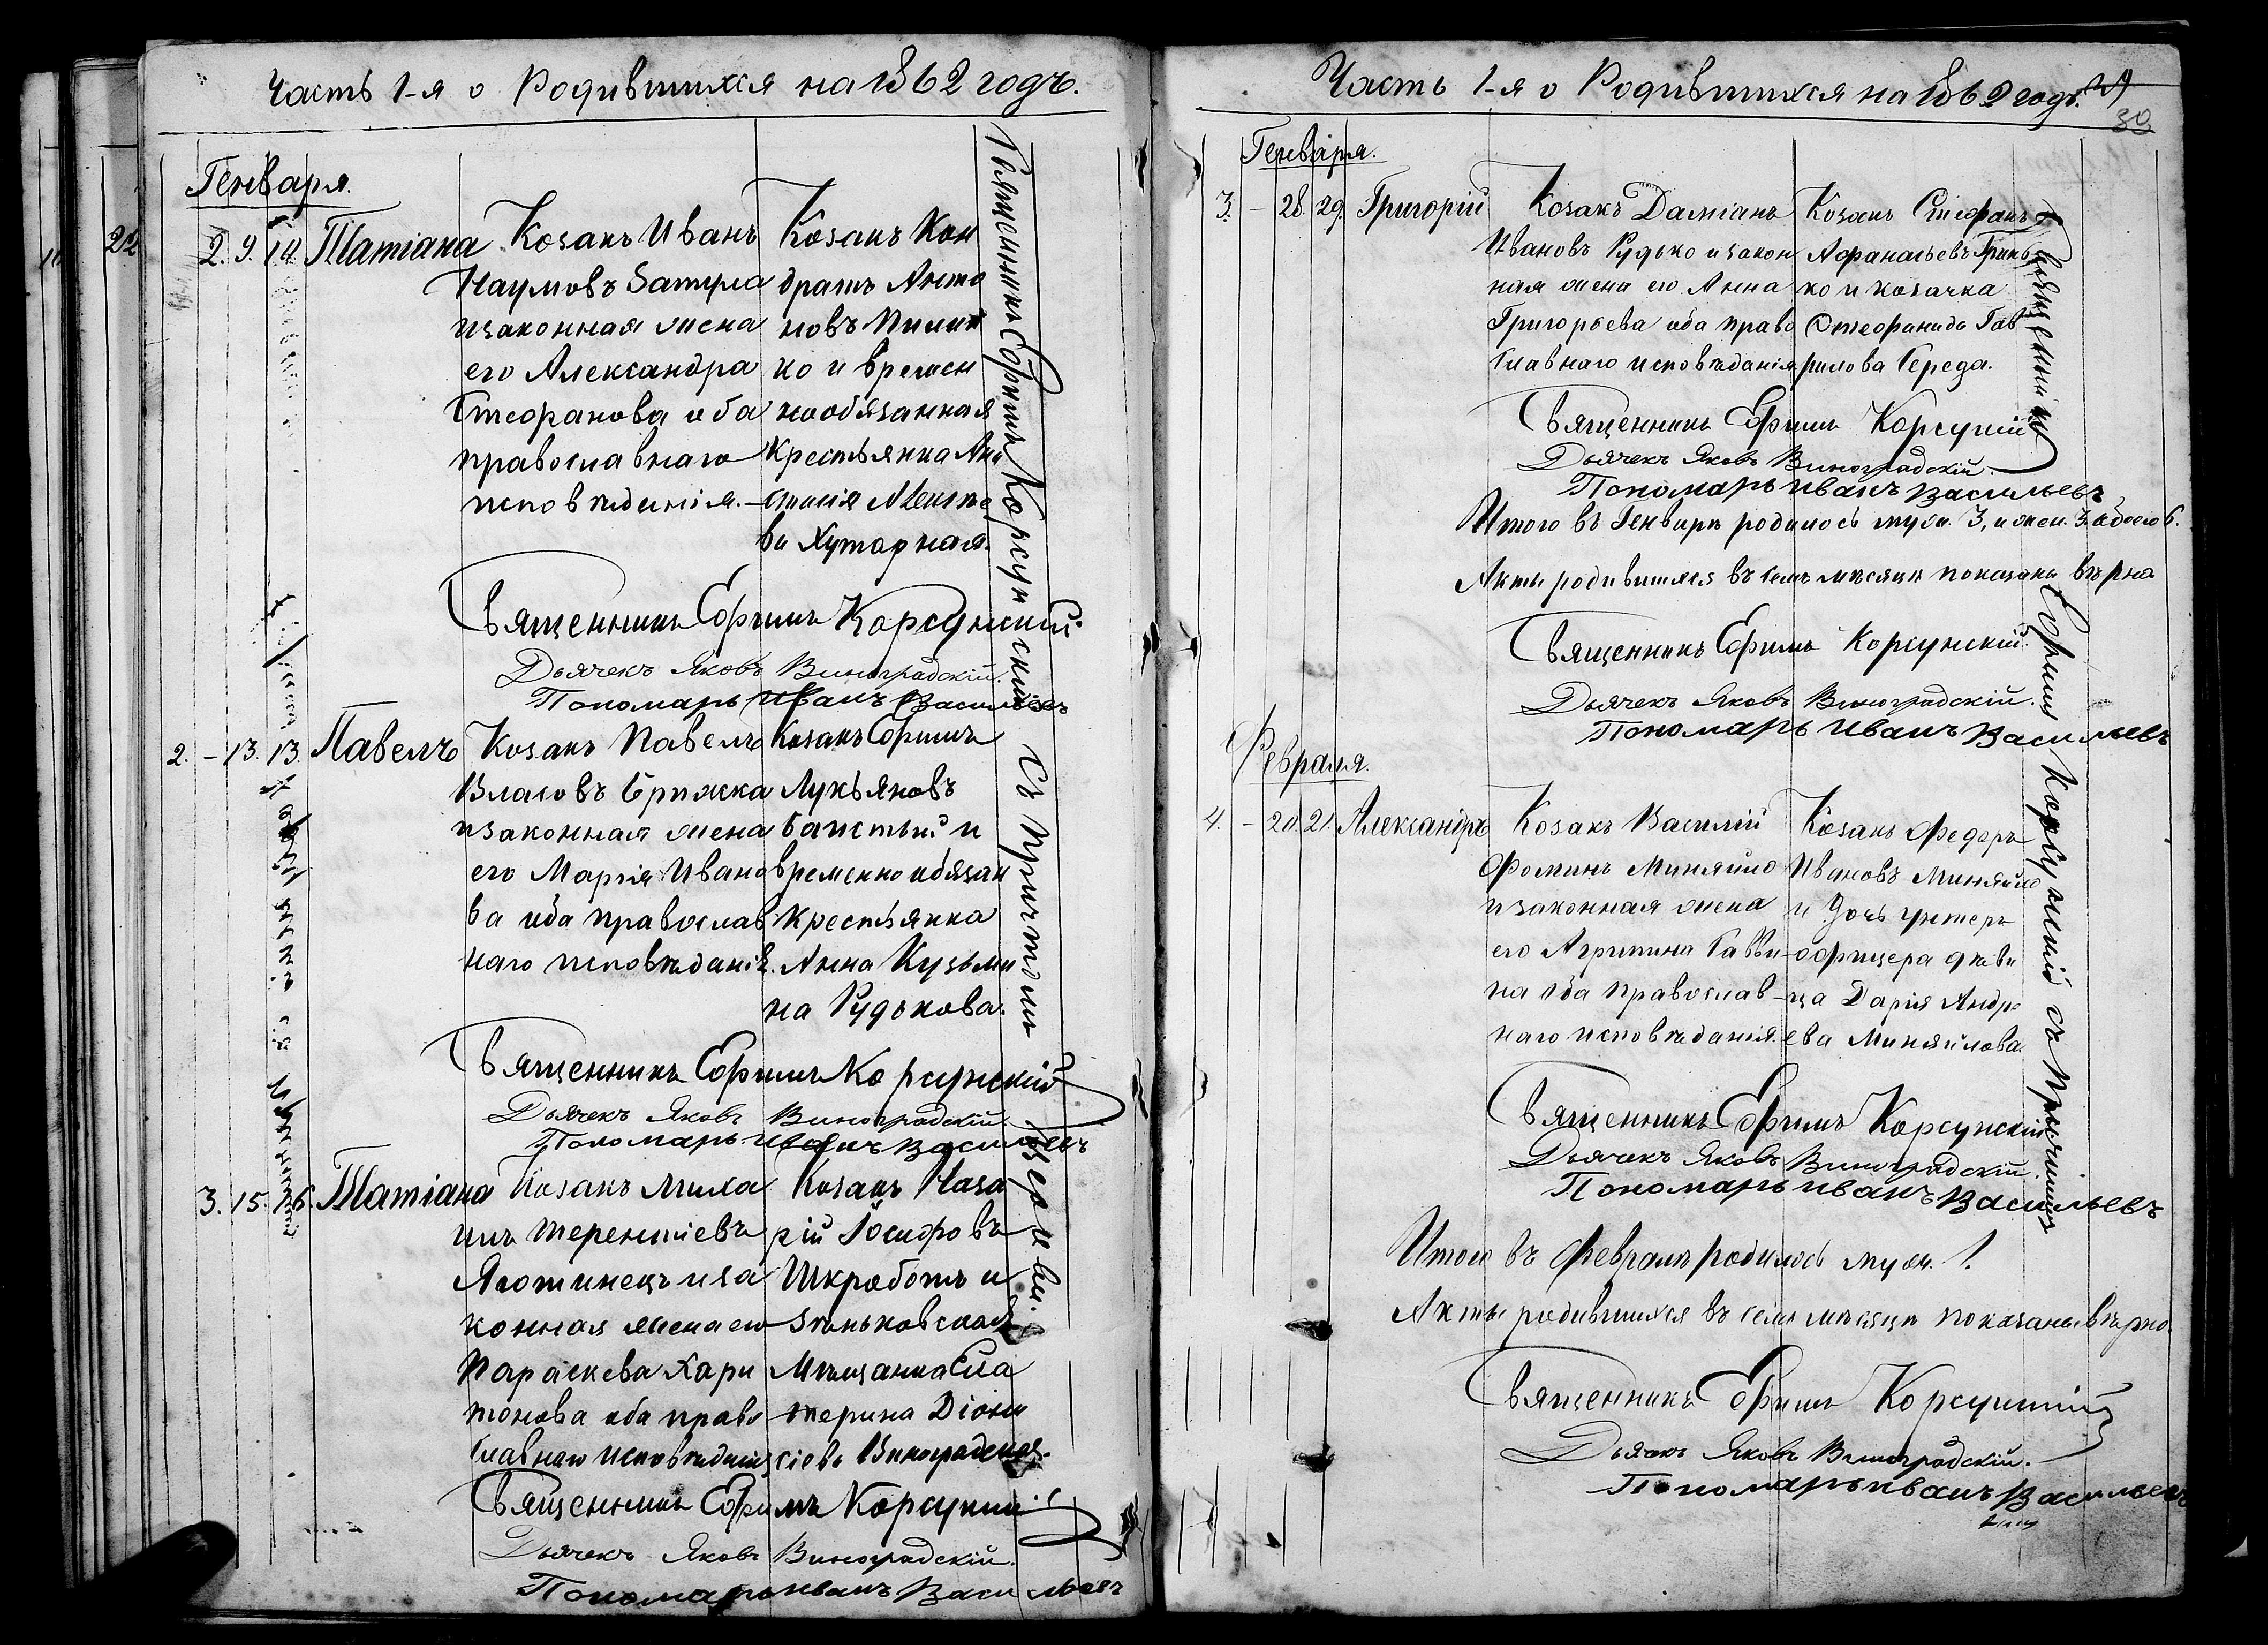 Часть 1-я о Родившихся на 1862 годъ.
Генваря.
2. 9. 14. Татіана
Козакъ Иванъ
Наумовъ Затула
и законная жена
его Александра
Стефанова оба
православнаго
исповѣданія.
Козакъ Кон
дратъ Анто
новъ Пилип
ко и времен
нообязанная
крестьянка Ана
стасія Алексѣе
ва Хуторная.
Священникъ Ефимъ Корсунскій
Дьячекъ Яковъ Виноградскій.
Пономарь Иванъ Васильевъ
2. – 13. 13. Павелъ
Козакъ Павелъ
Власовъ Бряжка
и законная жена
его Марія Ивано
ва оба православ
наго исповѣданія.
Козакъ Ефимъ
Лукьяновъ
и
временно обязан
крестьянка
Анна Кузьми
на Рудькова.
Священникъ Ефимъ Корсунскій
Дьячекъ Яковъ Виноградскій.
Пономарь Иванъ Васильевъ
3. 15. 16. Татіана
Козакъ Миха
илъ Терентіевъ
Яготинецъ и за
конная жена его
Параскева Хари
тонова оба право
славнаго исповѣданія
Козакъ Наза
рій Іосифовъ
Шкроботъ и
Зѣньковская
Мѣщанка Ека
терина Діони
сіева Виноградская.
Священникъ Ефимъ Корсунскій
Дьячекъ Яковъ Виноградскій.
Пономарь Иванъ Васильевъ
Священникъ Ефимъ Корсунскій съ Причтомъ
22
Часть 1-я о Родившихся на 1862 годъ.
29
30
Генваря.
3. – 28. 29. Григорій
Козакъ Даміанъ
Ивановъ Рудько и закон
ная жена его Анна
Григорьева оба право
славнаго исповѣданія
Козакъ Стефанъ
Афанасьевъ Гринь
ко и козачка
Стефанида Гав
рилова Середа.
Священникъ Ефимъ Корсунскій
Дьячекъ Яковъ Виноградскій.
Пономарь Иванъ Васильевъ
Итого въ Генварѣ родилось муж. 3, и жен. 3. обоего 6.
Акты родившихся въ семъ мѣсяцѣ показаны вѣрно
Священникъ Ефимъ Корсунскій
Дьячекъ Яковъ Виноградскій.
Пономарь Иванъ Васильевъ
Февраля.
4. – 20. 21. Александръ
Козакъ Василій
Фоминъ Миняйло
и законная жена
его Агрипина Савви
на оба православ
наго исповѣданія.
Козакъ Федоръ
Ивановъ Миняйло
и дочь унтеръ
офицера дѣви
ца Дарія Андре
ева Миняйлова.
Священникъ Ефимъ Корсунскій
Дьячекъ Яковъ Виноградскій.
Пономарь Иванъ Васильевъ
Итого въ Февралѣ родилось муж. 1.
Акты родившихся въ семъ мѣсяцѣ показаны вѣрно.
Священникъ Ефимъ Корсунскій
Дьячекъ Яковъ Виноградскій.
Пономарь Иванъ Васильевъ
Священникъ Ефимъ Корсунскій съ Причтомъ